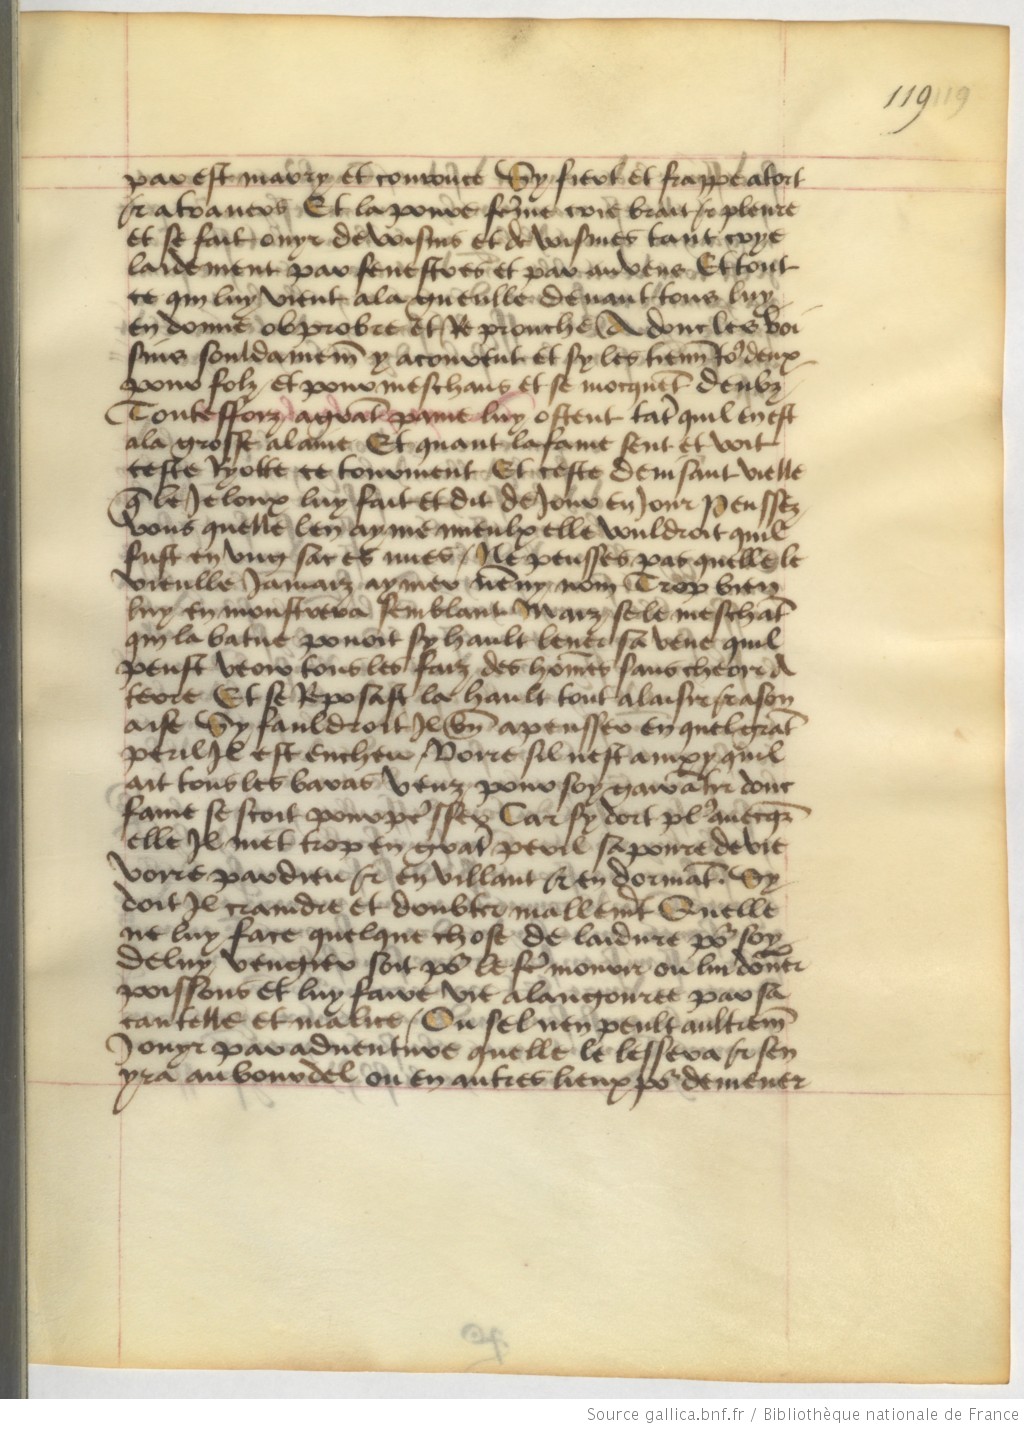 119 119
par est marry et courouce Sy fiert et frappe a tort
et a travers Et la povre fẽme crie brait et pleure
et se fait ouyr de voisins et de voisines tant crye
laidement par fenestres et par auvens Et tout
ce qui luy vient a la gueulle devant tous luy
en donne obprobre et Reprouche Adonc les voi
sins souldainem̃ y acourent et sy les tienñt to9 deux
pour folz et pour meschans et se mocquẽt deulz
Toutesfforz a grãt paine luy ostent tãt quil en est
a la grosse alaine Et quant la fame sent et voit
ceste Ryotte ce tourment Et ceste deulsant vielle
q̃ le Jeloux luy fait et dit de Jour en Jour Penssez
vous quelle len ayme mieulx elle vouldroit quil
fust en ung sac es nues / Ne pensses pas quelle le
vieulle Jamaiz aymer nẽny nom Trop bien
luy en monstrera semblant Maiz se le meschãt
qui la batue povoit sy hault lever sa veue quil
peust veoir tous les faiz des hõmes sans cheoir a
terre Et se Reposast la hault tout a laisir et a son
aise Sy fauldroit Jl biẽ a pensser en quel grãt
peril Jl est encheu / Voire sil nest ainxy quil
ait tous les baras veuz pour soy garãtir donc
fame se scoit pourpẽsser Car sy dort pl9 avecq̃
elle Jl met trop en grãt peril sa povre de vie
voire pardieu et en villant et en dormãt. Sy
doit Jl craindre et doubter mallem̃t Quelle
ne luy face quelque chose de laidure po9 soy
deluy vengier soit po9 le fẽ mourir ou lui dõner
poissons et luy faire vie alangouree par sa
cautelle et malice / Ou sel nen peult aultrem̃
Jouyr par adventure quelle le lessera et sen
yra au bourdel ou en autres lieux po9 demener
Source gallica.bnf.fr / Bibliothèque nationale de France